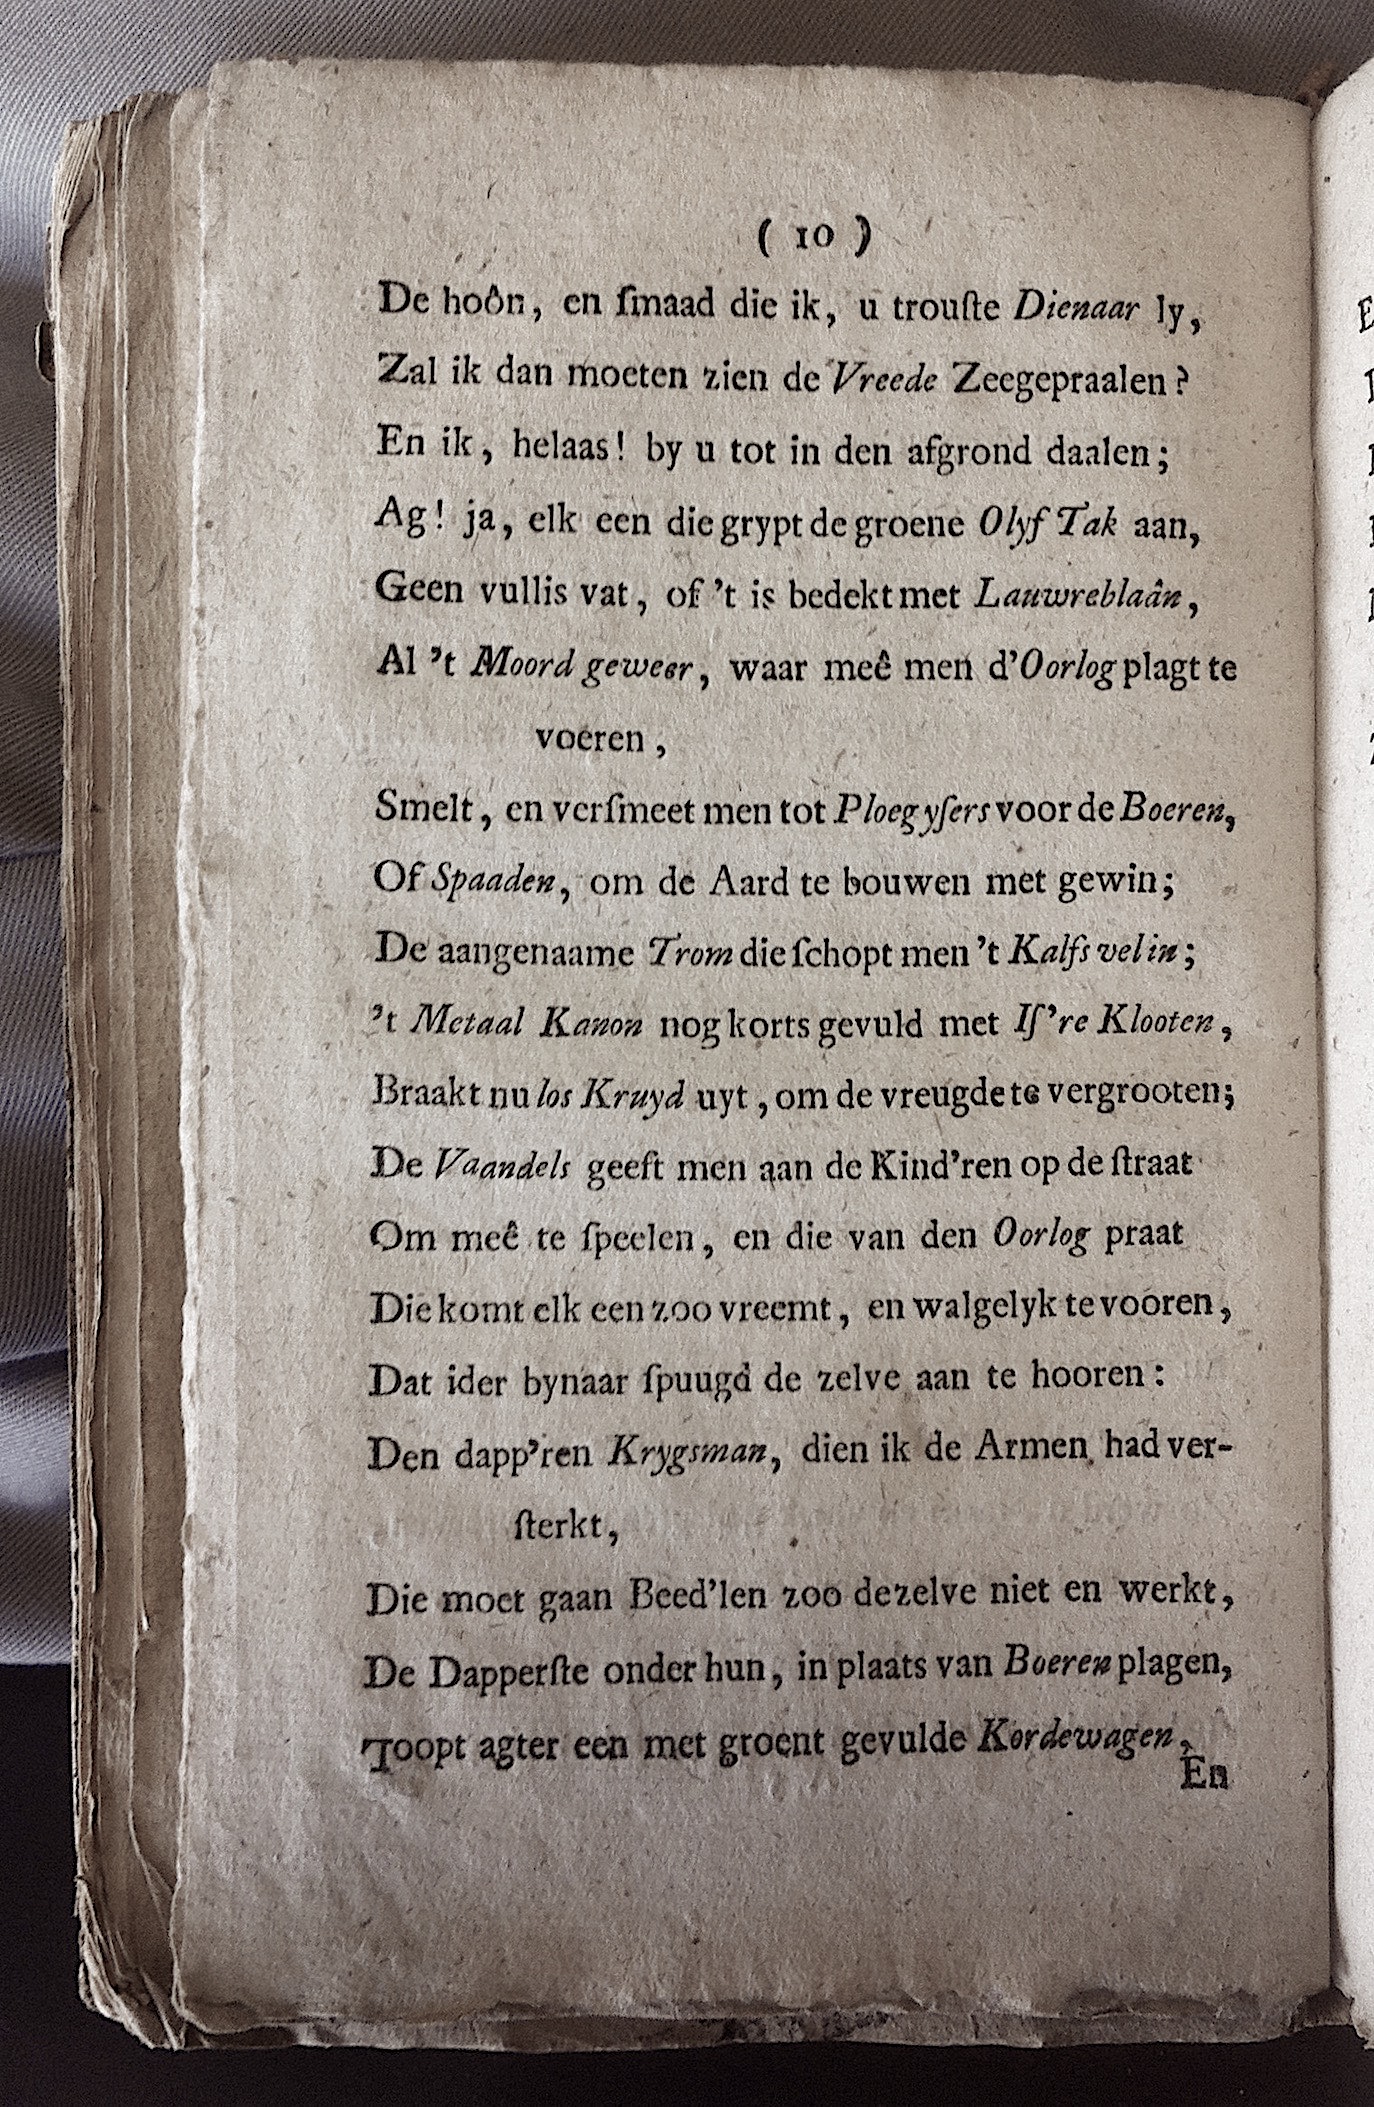 ( 10 )
De hoôn, en ſmaad die ik, u trouſte Dienaar ly,
Zal ik dan moeten zien de Vreede Zeegepraalen?
En ik, helaas! by u tot in den afgrond daalen;
Ag! ja, elk een die grypt de groene Olyf Tak aan,
Geen vullis vat, of 't is bedekt met Lauwreblaân,
Al 't Moord geweer, waar meê men d'Oorlog plagt te
voeren,
Smelt, en verſmeet men tot Ploegyſers voor de Boeren,
Of Spaaden, om de Aard te bouwen met gewin;
De aangenaame Trom die ſchopt men 't Kalfs vel in;
't Metaal Kanon nog korts gevuld met Iſ're Klooten,
Braakt nu los Kruyd uyt, om de vreugde te vergrooten;
De Vaandels geeft men aan de Kind'ren op de ſtraat
Om meê te ſpeelen, en die van den Oorlog praat
Die komt elk een zoo vreemt, en walgelyk te vooren,
Dat ider bynaar ſpuugd de zelve aan te hooren:
Den dapp'ren Krygsman, dien ik de Armen had ver-
ſterkt,
Die moet gaan Beed'len zoo dezelve niet en werkt,
De Dapperſte onder hun, in plaats van Boeren plagen,
Toopt agter een met groent gevulde Kordewagen,
En